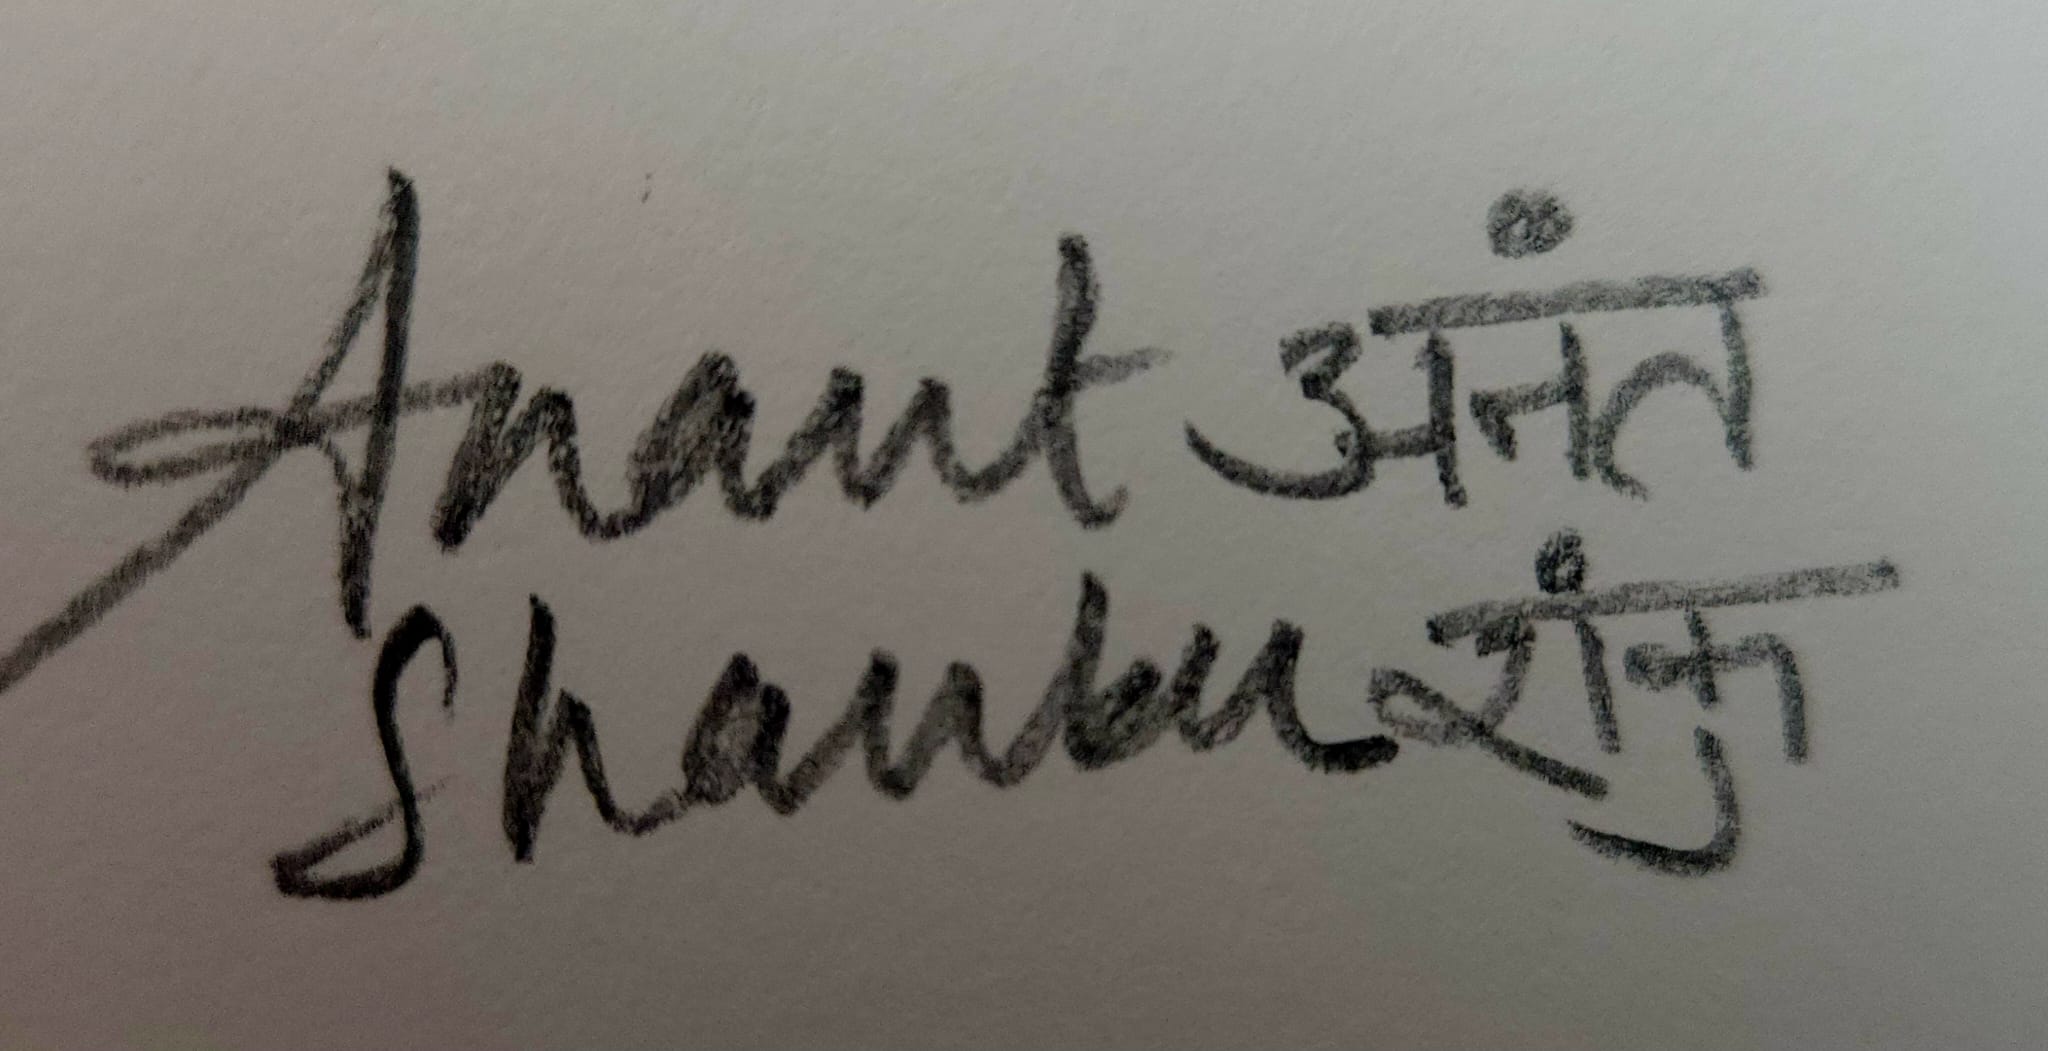 Anant अनंत
Shanku शंकु